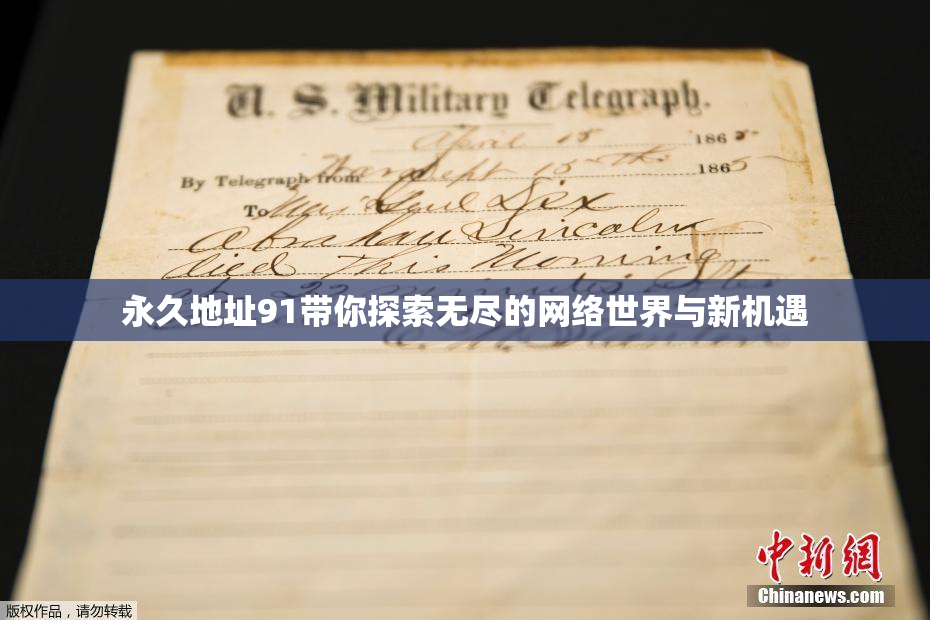 U. S. Military Telegraph.
April 15 1865
By Telegraph from War Dept 15th 1865
To Maj Genl Dix
Abraham Lincoln
died This Morning
at 22 minutes after
永久地址91带你探索无尽的网络世界与新机遇
中新網
Chinanews.com
版权作品,请勿转载